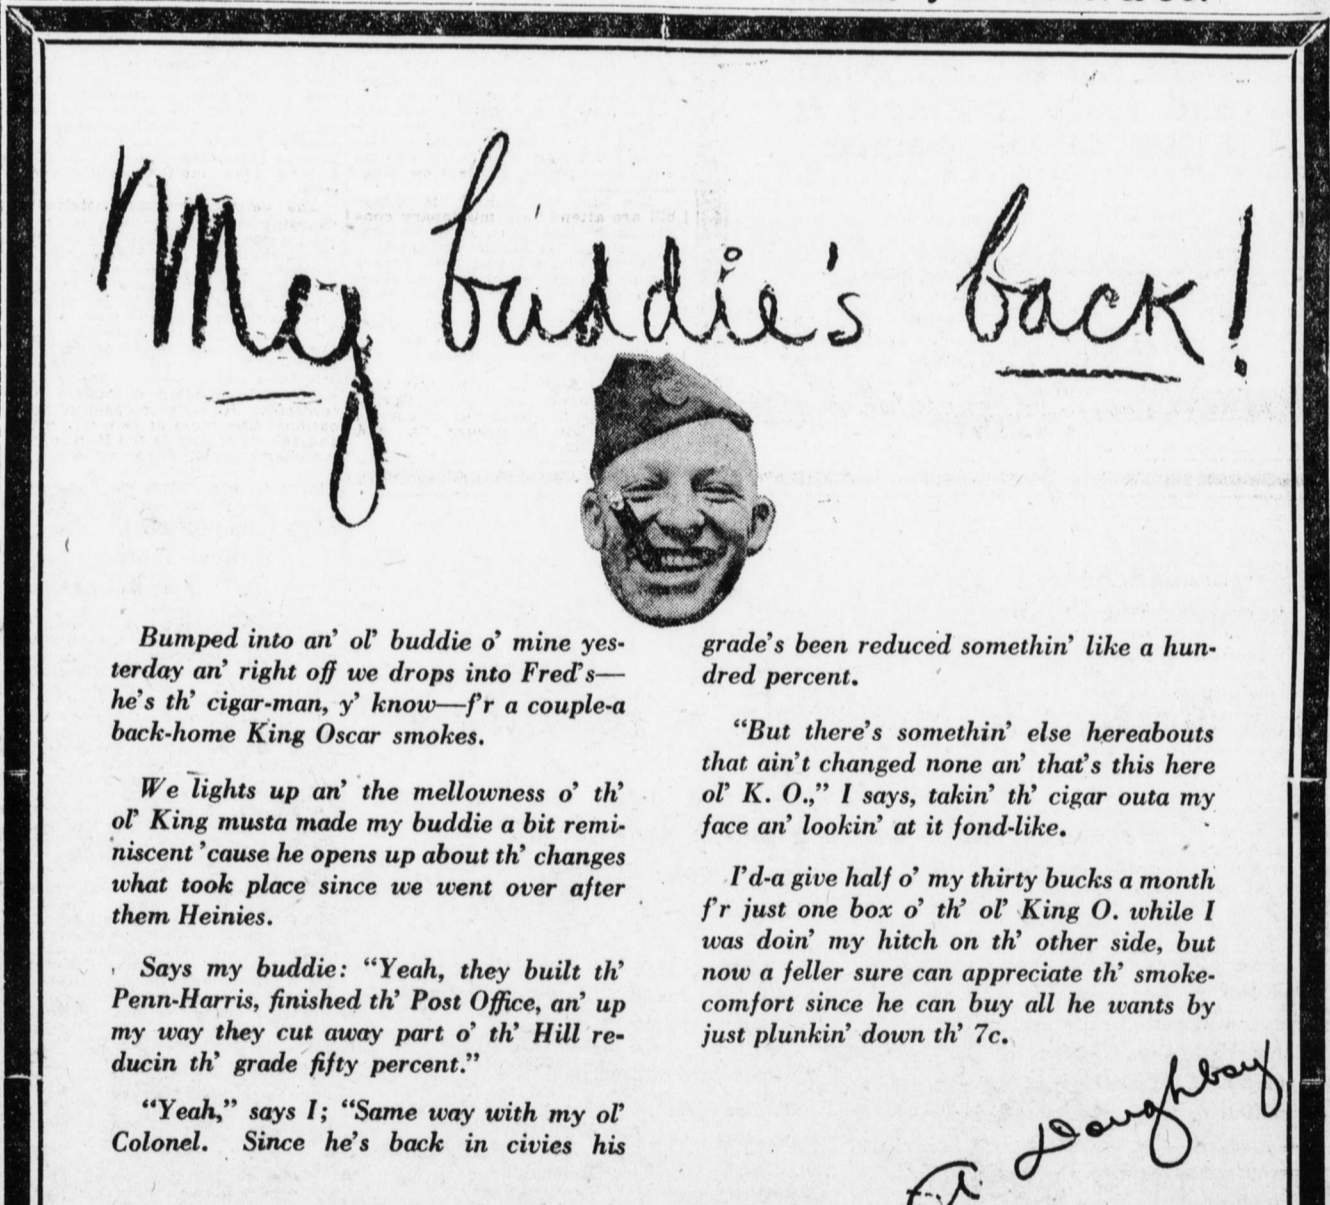 My buddie's back!
Bumped into an' ol' buddie o' mine yes-
terday an' right off we drops into Fred's—
he's th' cigar-man, y' know—f'r a couple-a
back-home King Oscar smokes.
We lights up an' the mellowness o' th'
ol' King musta made my buddie a bit remi-
niscent 'cause he opens up about th' changes
what took place since we went over after
them Heinies.
Says my buddie: "Yeah, they built th'
Penn-Harris, finished th' Post Office, an' up
my way they cut away part o' th' Hill re-
ducin th' grade fifty percent."
"Yeah," says I; "Same way with my ol'
Colonel. Since he's back in civies his
grade's been reduced somethin' like a hun-
dred percent.
"But there's somethin' else hereabouts
that ain't changed none an' that's this here
ol' K. O.," I says, takin' th' cigar outa my
face an' lookin' at it fond-like.
I'd-a give half o' my thirty bucks a month
f'r just one box o' th' ol' King O. while I
was doin' my hitch on th' other side, but
now a feller sure can appreciate th' smoke-
comfort since he can buy all he wants by
just plunkin' down th' 7c.
A Doughboy